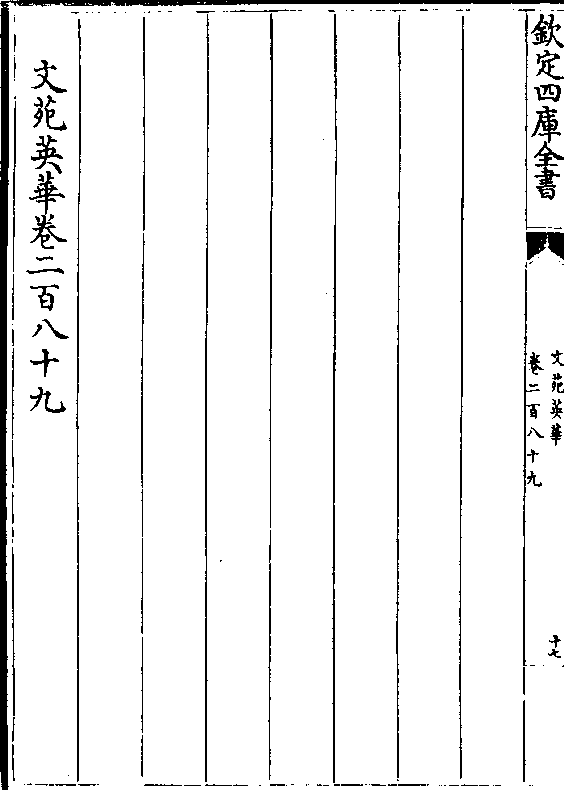 欽定四庫全書
文苑英華
卷二百八十九
十七
文苑英華卷二百八十九